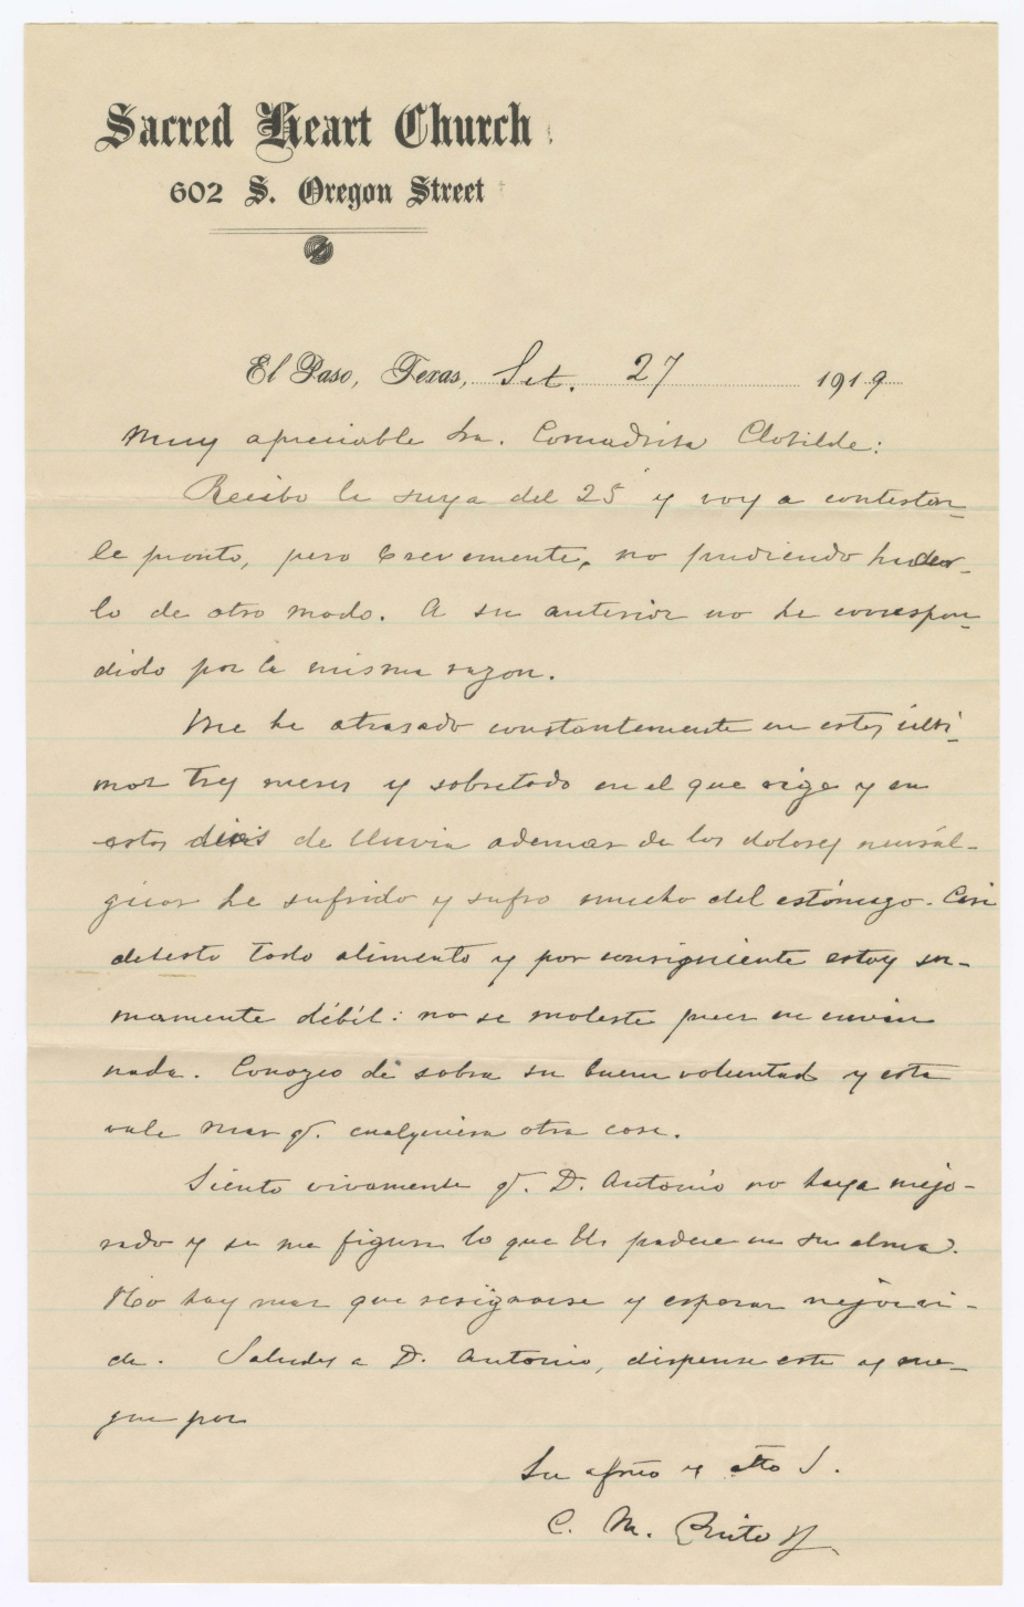 Sacred Heart Church
602 S. Oregon Street
El Paso, Texas, Set. 27 1919
Muy apreciable Sra. Comadrita Clotilde:
Recibo la suya del 25 y voy a contestar-
le pronto, pero brevemente, no pudiendo hacer-
lo de otro modo. A su anterior no he correspon-
dido por la misma razon.
Me he atrasado constantemente en estos últi-
mos tres meses y sobretodo en el que rige y en
estos dias de lluvia ademas de los dolores neurál-
gicos he sufrido y sufro mucho del estómago. Casi
detesto todo alimento y por consiguiente estoy su-
mamente débil: no se moleste pues en enviar
nada. Conozco de sobra su buena voluntad y esta
vale mas q. cualquiera otra cosa.
Siento vivamente q. D. Antonio no haya mejo-
rado y se me figura lo que Ud. padece en su alma.
No hay mas que resignarse y esperar mejor vi-
da. Saludes a D. Antonio, dispense este y rue-
gue por
Su afmo y atto S.
C. M. Pinto SJ